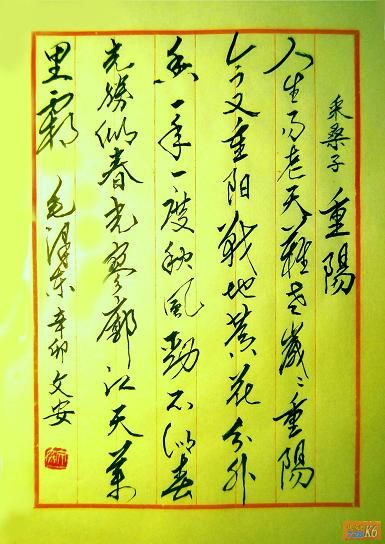 采桑子 重陽
人生易老天難老歲〻重陽
今又重阳戰地黄花分外
香一年一度秋風勁不似春
光勝似春光寥廓江天萬
里霜 毛澤东 辛卯 文安
K6